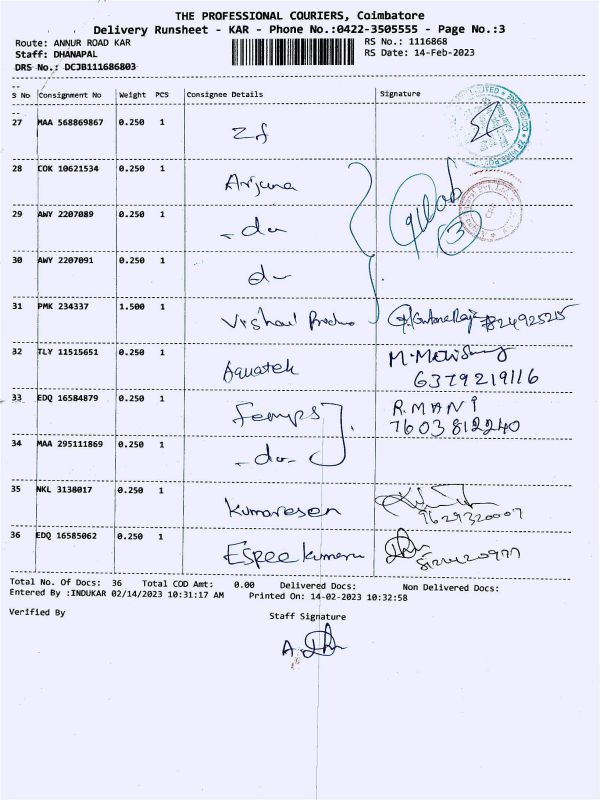 THE PROFESSIONAL COURIERS, Coimbatore
Delivery Runsheet - KAR - Phone No.:0422-3505555 - Page No.:3
Route: ANNUR ROAD KAR RS No.: 1116868
Staff: DHANAPAL RS Date: 14-Feb-2023
DRS No.: DCJB111686803
S No Consignment No Weight PCS Consignee Details Signature
27 MAA 568869867 0.250 1 Zf
28 COK 10621534 0.250 1 Arjuna
29 AWY 2207089 0.250 1 - do
3
30 AWY 2207091 0.250 1 do
31 PMK 234337 1.500 1 Vishal
32 TLY 11515651 0.250 1 Aquatek
6379219116
33 EDQ 16584879 0.250 1 R.MANI
7603812240
34 MAA 295111869 0.250 1 - do -
35 NKL 3138017 0.250 1 Kumaresan
9629320007
36 EDQ 16585062 0.250 1
Total No. Of Docs: 36 Total COD Amt: 0.00 Delivered Docs: Non Delivered Docs:
Entered By :INDUKAR 02/14/2023 10:31:17 AM Printed On: 14-02-2023 10:32:58
Verified By Staff Signature